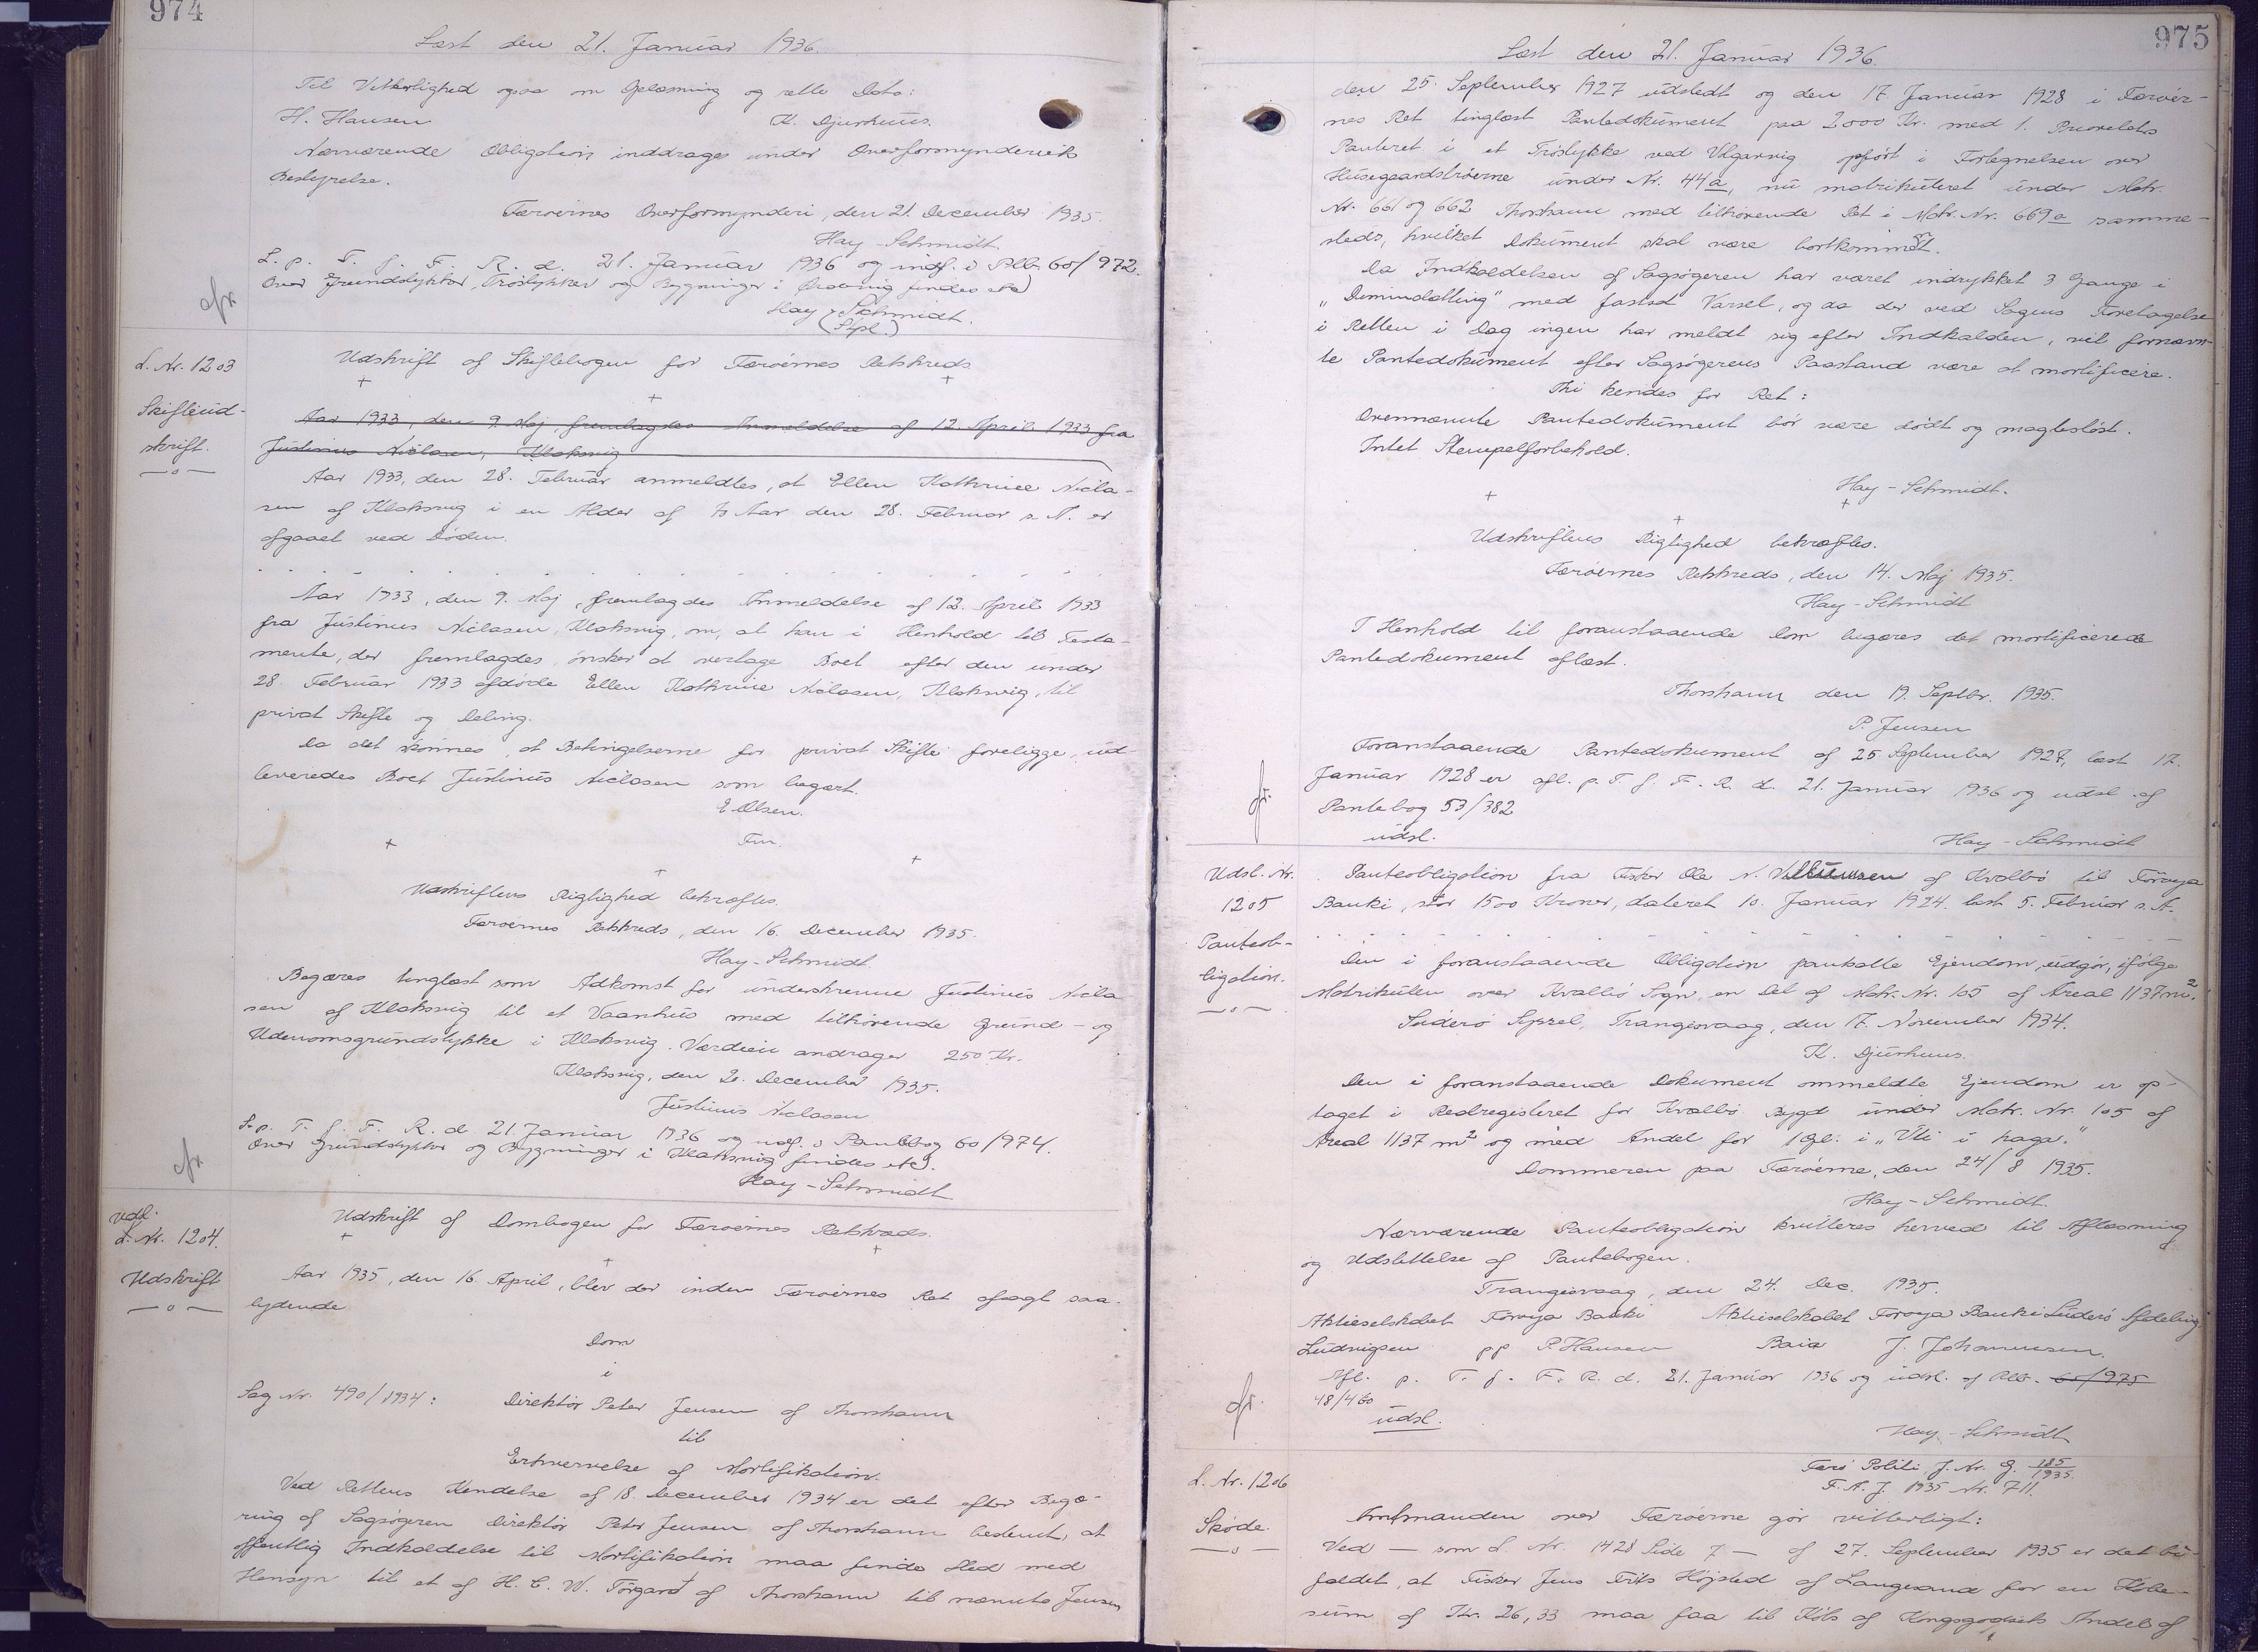 974
Læst den 21. Januar 1936.
Til Vitterlighed ogsaa om Oplæsning og rette Dato:
H. Hansen K. Djurhuus.
Nærværende Obligation inddrages under Overformynderiets
Bestyrelse.
Færøernes Overformynderi, den 21. December 1935.
Hay-Schmidt.
L. p. T. f. F. R. d. 21. Januar 1936 og indf. i Pb. 60/972.
Over Grundstykker, Trøstykker og Bygninger i findes etc)
Hay-Schmidt.
(Stpl.)
cfr
L. Nr. 1203
Skifteud-
skrift.
Udskrift af Skiftebogen for Færøernes Retskreds.
Aar 1933, den 9. Maj, fremlagdes Anmeldelse af 12. April 1933 fra
Justinus Niclasen, Klaksvig
Aar 1933, den 28. Februar anmeldtes, at Ellen Kathrine Nicla-
sen af Klaksvig i en Alder af Aar den 28. Februar s. A. er
afgaaet ved Døden.
Aar 1933, den 9. Maj, fremlagdes Anmeldelse af 12. April 1933
fra Justinus Niclasen, Klaksvig, om, at han i Henhold til Testa-
mente, der fremlagdes, ønsker at overtage Boet efter den under
28. Februar 1933 afdøde Ellen Kathrine Niclasen, Klaksvig, til
privat Skifte og Deling.
Da det skønnes, at Betingelserne for privat Skifte foreligge, ud-
leveredes Boet Justinus Niclasen som begært.
E. Olsen.
Fm.
Udskriftens Rigtighed bekræftes.
Færøernes Retskreds, den 16. December 1935.
Hay-Schmidt.
Begæres tinglæst som Adkomst for underskrevne Justinus Nicla
sen af Klaksvig til et Vaanhus med tilhørende Grund- og
Udenomsgrundstykke i Klaksvig. Værdien andrager 250 Kr.
Klaksvig, den 20. December 1935.
Justinus Niclasen
L. p. T. f. F. R. d. 21. Januar 1936 og indf. i Pantebog 60/974.
Over Grundstykker og Bygninger i Klaksvig findes etc).
Hay-Schmidt
cfr
udsl.
L. Nr. 1204.
Udskrift
Udskrift af Dombogen for Færøernes Retskreds.
Aar 1935, den 16. April, blev der inden Færøernes Ret afsagt saa-
lydende
Dom
i
Sag Nr. 490/1934: Direktør Peter Jensen af Thorshavn
til
Erhvervelse af Mortifikation.
Ved Rettens Kendelse af 18. December 1934 er det efter Begæ-
ring af Sagsøgeren Direktør Peter Jensen af Thorshavn bestemt, at
offentlig Indkaldelse til Mortifikation maa finde Sted med
Hensyn til et af H. C. W. Tórgarð af Thorshavn til nævnte Jensen
975
Læst den 21. Januar 1936.
den 25. September 1927 udstedt og den 17. Januar 1928 i Færøer-
nes Ret tinglæst Pantedokument paa 2000 Kr. med 1. Prioritets
Panteret i et Trøstykke ved Volgarvig opført i Fortegnelsen over
Husegaardstrøerne under Nr. 44a, nu matrikuleret under Matr.
Nr. 661 og 662 Thorshavn med tilhørende Ret i Matr. Nr. 669a samme-
steds, hvilket Dokument skal være bortkommet.
Da Indkaldelsen af Sagsøgeren har været indrykket 3 Gange i
"Dimmalætting" med fastsat Varsel, og da der ved Sagens Foretagelse
i Retten i Dag ingen har meldt sig efter Indkalden, vil fornævn-
te Pantedokument efter Sagsøgerens Paastand være at mortificere.
Thi kendes for Ret:
Ovennævnte Pantedokument bør være dødt og magtesløst.
Intet Stempelforbehold.
Hay-Schmidt.
Udskriftens Rigtighed bekræftes.
Færøernes Retskreds, den 14. Maj 1935.
Hay-Schmidt
I Henhold til foranstaaende Dom begæres det mortificerede
Pantedokument aflæst.
Thorshavn den 19. Septbr. 1935.
P. Jensen
Foranstaaende Pantedokument af 25 September 1927, læst 17.
Januar 1928 er afl. p. T. f. F. R. d. 21. Januar 1936 og udsl. af
Pantebog 53/382
udsl.
Hay-Schmidt
cfr.
Udsl. Nr.
1205
Panteob-
ligation.
Panteobligation fra Fisker Ole N. af Kvalbø til Føroya
Banki, stor 1500 Kroner, dateret 10. Januar 1924. læst 5. Februar s. A.
Den i foranstaaende Obligation pantsatte Ejendom, udgør, ifølge
Matrikulen over Kvalbø Sogn, en Del af Matr. Nr. 105 af Areal 1137 m².
Suderø Syssel, Trangisvaag, den 17. November 1934.
K. Djurhuus.
Den i foranstaaende Dokument ommeldte Ejendom er op-
taget i Realregisteret for Kvalbø Bygd under Matr. Nr. 105 af
Areal 1137 m² og med Andel for 1 Gl. i "Uti í haga."
Dommeren paa Færøerne, den 24/8 1935.
Hay-Schmidt.
Nærværende Panteobligation kvitteres herved til Aflæsning
og Udslettelse af Pantebogen.
Trangisvaag, den 24. Dec. 1935.
Aktieselskabet Føroya Banki Aktieselskabet Føroya Banki Suderø Afdeling
Ludvigsen pp P. Hansen J. Johannesen.
Afl. p. T. f. F. R. d. 21. Januar 1936 og udsl. af Pb. 60/975
48/460
udsl.
Hay-Schmidt
cfr.
L. Nr. 1206
Skøde.
Færø Politi J. Nr. G. 185/1935.
F. A. J. 1935 Nr. 711.
Amtmanden over Færøerne gør vitterligt:
Ved — som d. Nr. 1428 Side 7 — af 27. September 1935 er det bi-
faldet, at Fisker Jens Frits Højsted af Langesand for en Købe-
sum af Kr. 26,33 maa faa til Køb af Kongsgodsets Andel af